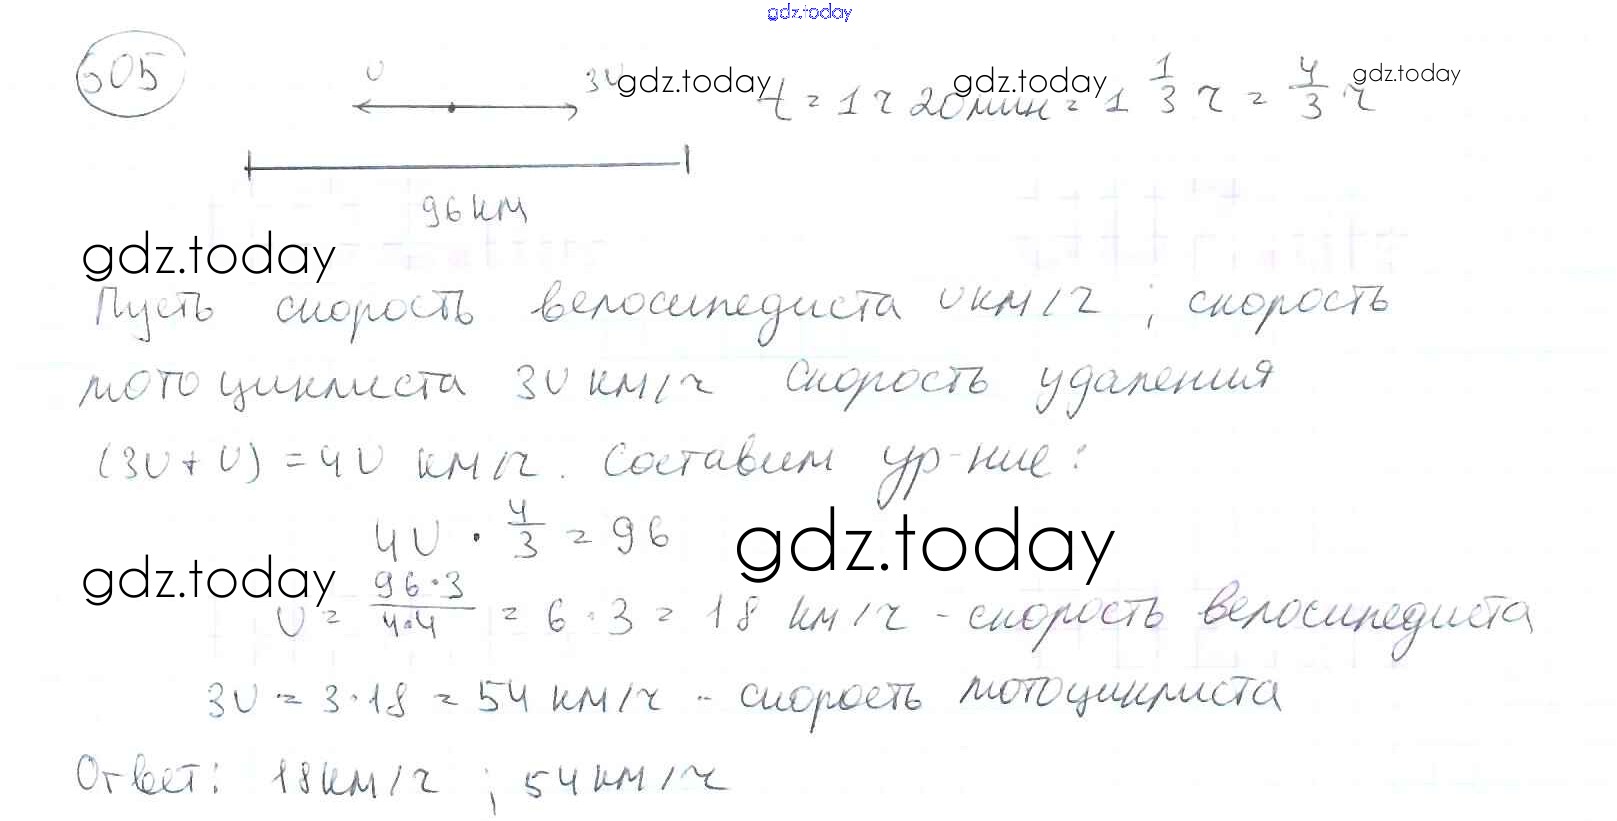 gdz.today
505
υ
3υ gdz.today
t = 1 ч 20 мин = 1 1/3 ч = 4/3 ч
gdz.today gdz.today
96 км
gdz.today
Пусть скорость велосипедиста υ км/ч ; скорость
мотоциклиста 3υ км/ч Скорость удаления
(3υ + υ) = 4υ км/ч. Составим ур-ние:
4υ · 4/3 = 96
gdz.today
gdz.today
υ = 96·3/4·4 = 6·3 = 18 км/ч - скорость велосипедиста
3υ = 3·18 = 54 км/ч - скорость мотоциклиста
Ответ: 18 км/ч ; 54 км/ч